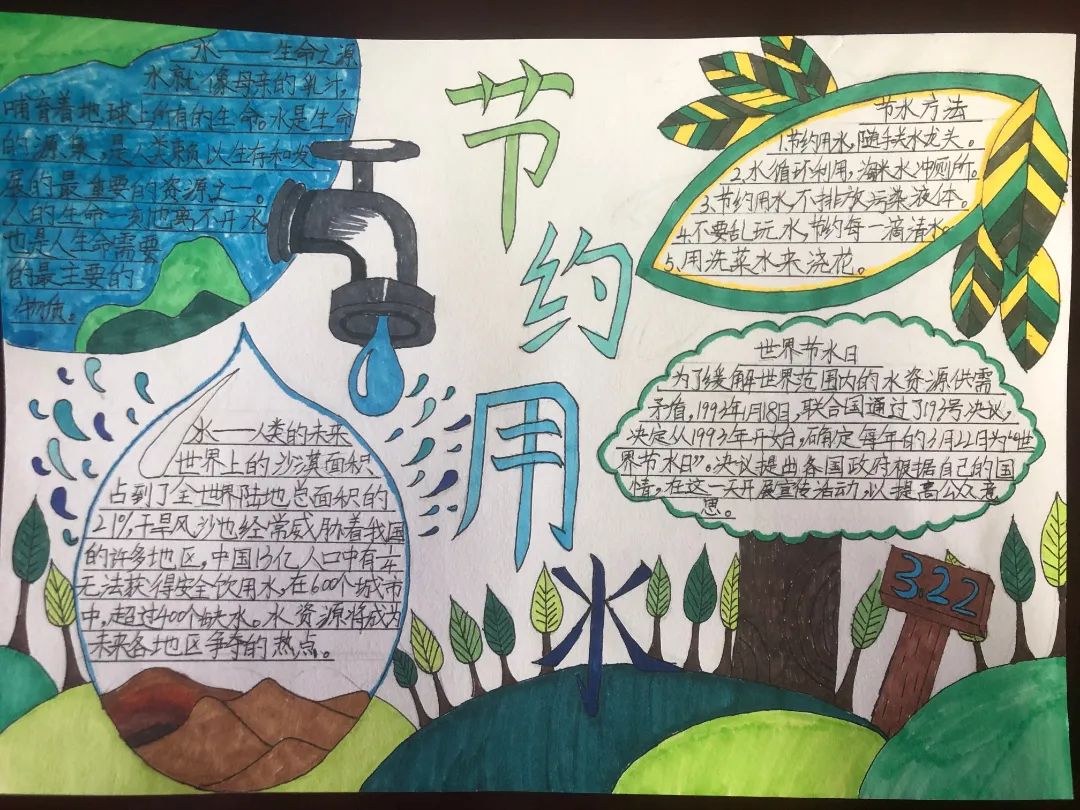 水——生命之源
水就像母亲的乳汁,
哺育着地球上所有的生命。水是生命
的源泉,是人类赖以生存和发
展的最重要的资源之一。
人的生命一刻也离不开水,
也是人生命需要
的最主要的
物质。
节
约
用
水
节水方法
1.节约用水,随手关水龙头。
2.水循环利用,淘米水冲厕所。
3.节约用水不排放污染液体。
4.不要乱玩水,节约每一滴清水。
5.用洗菜水来浇花。
世界节水日
为了缓解世界范围内的水资源供需
矛盾,1993年1月18日,联合国通过了193号决议,
决定从1993年开始,确定每年的3月22日为“世
界节水日”。决议提出各国政府根据自己的国
情,在这一天开展宣传活动,以提高公众意
思。
水——人类的未来
世界上的沙漠面积
占到了全世界陆地总面积的
21%,干旱风沙也经常威胁着我国
的许多地区,中国13亿人口中有
无法获得安全饮用水,在600个城市
中,超过400个缺水。水资源将成为
未来各地区争夺的热点。
3.22